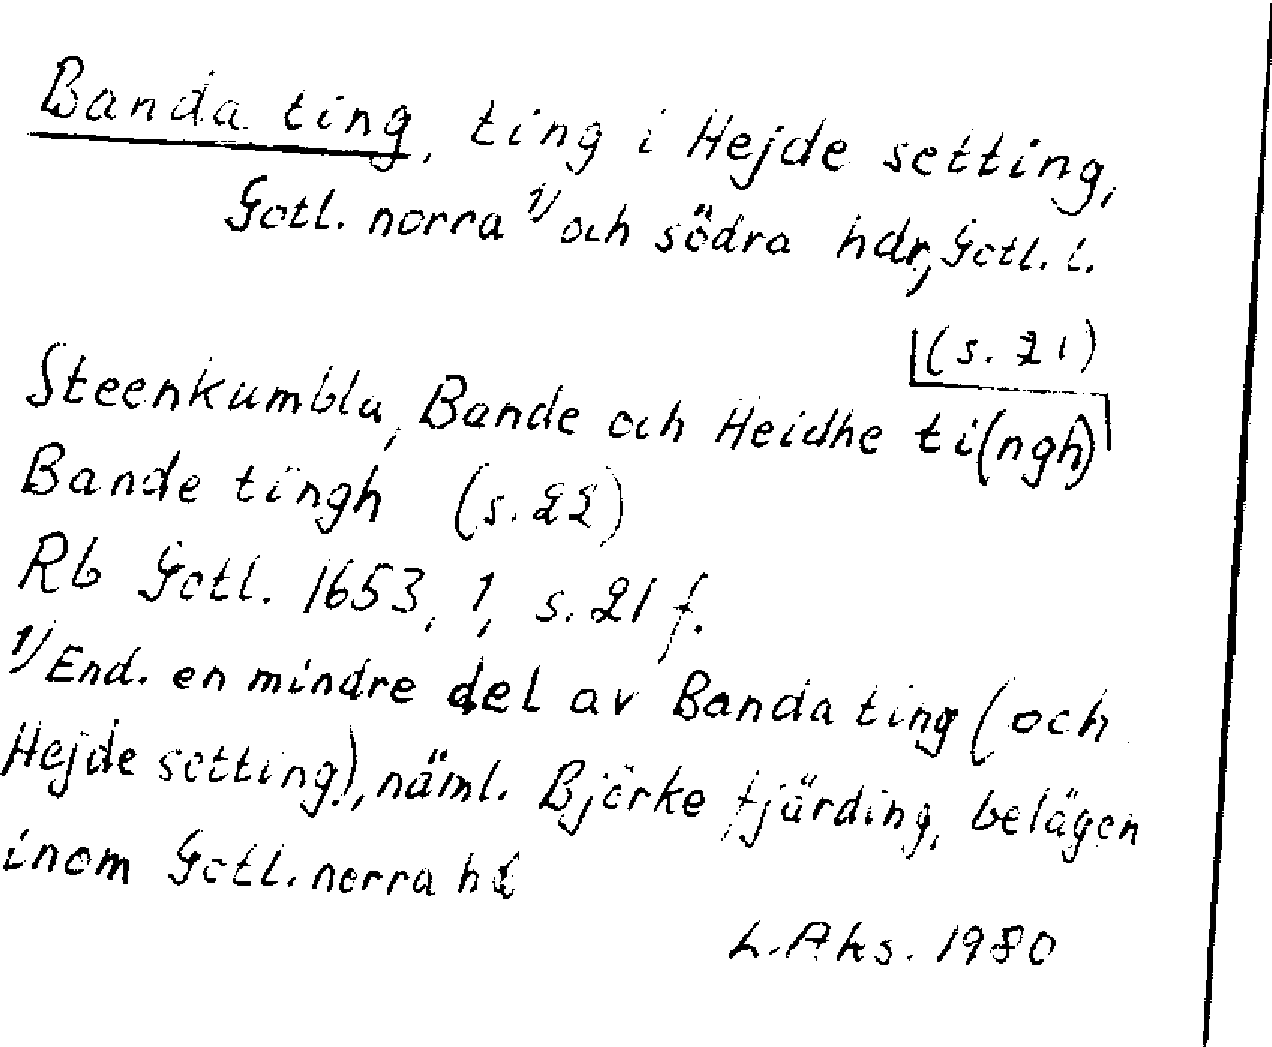 Banda ting, ting i Hejde setting,
Gotl. norra 1/ och södra hdr, Gotl. l.
(s. 21)
Steenkumbla, Bande och Heidhe ti(ngh)
Bande tingh (s. 22)
Rb Gotl. 1653, 1, s. 21 f.
1/ End. en mindre del av Banda ting (och
Hejde setting), näml. Björke fjärding, belägen
inom Gotl. norra hd
L. Aks. 1980